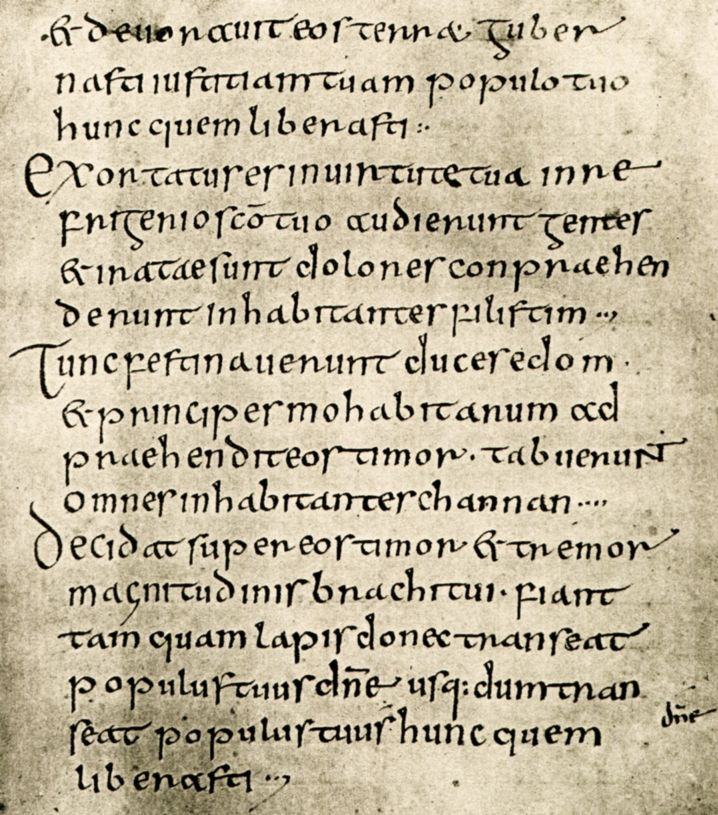 ·& deuorauit eos terra guber
nasti iustitiam tuam populo tuo
hunc quem liberasti :·
Exortatus es in uirtute tua in re
frigerio scō tuo audierunt gentes
& iratae sunt dolores conpraehen
derunt inhabitantes filistim ··,
Tunc festinauerunt duces edom ·
& principes mohabitarum ad
praehendit eos timor · tabuerunt
omnes inhabitantes channan ····
Decidat super eos timor & tremor
magnitudinis brachi tui · fiant
tam quam lapis donec transeat
populus tuus dn̄e usq: dum tran
seat populus tuus hunc quem
dn̄e
liberasti ··,